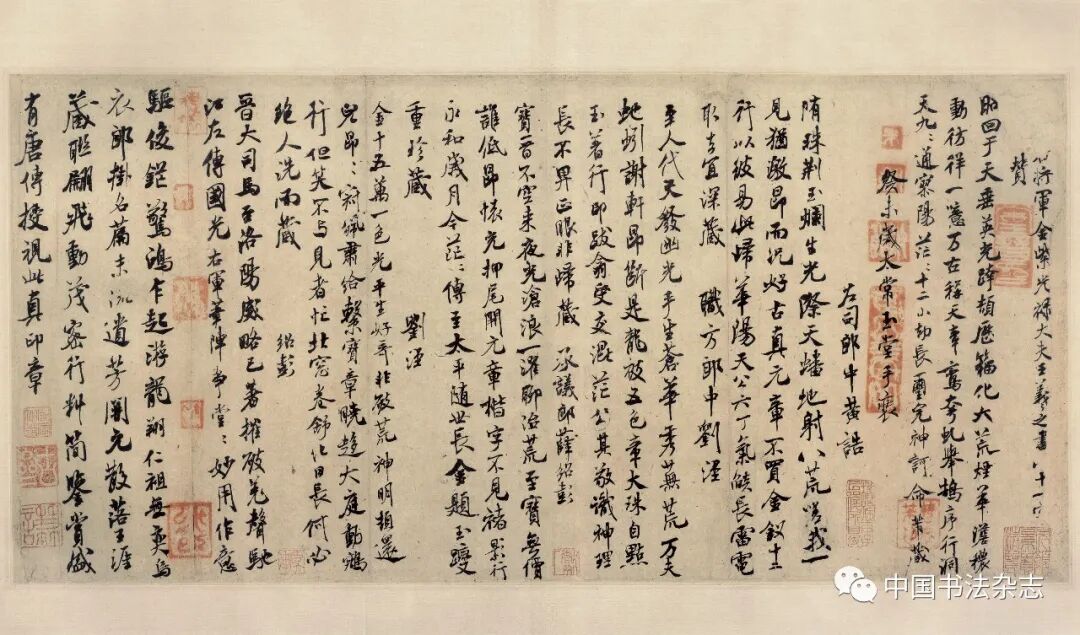 右將軍金紫光祿大夫王羲之書 八十一字
贊
昭回于天垂英光跨頡歷籀化大荒煙華澹穠
動彷徉一噫万古稱天章鸞夸虬舉鵠序行洞
天九九通寥陽茫茫十二小劫長璽完神訶命芾藏
癸未歲太常玉堂手裝
左司郎中黃誥
隋珠荆玉爛生光際天蟠地射八荒嗟我一
見猶激昂而況好古真元章不買金釵十二
行以彼易此歸華陽天公六丁氣候長雷電
取去宜深藏 職方郎中劉涇
至人代天發幽光平生蒼華秀蕪荒万天
虵蚓謝軒昂斷是龍被五色章大珠自點
玉著行即跋翕受交混茫公其敬識神理
長不畀正眼非歸藏 承議郎薛紹彭
寶晉不空来夜光滄浪一濯聊治荒至寶無價
誰低昂懷充押尾開元章楷字不見褚累行
永和歲月今茫茫傳至太平随世長金題玉躞
重珍藏 劉涇
金十五萬一色光平生好奇非敏荒神明頓還
昂昂肅給繫寶章曉趍大庭動鵷
行但笑不与見者忙北窓卷舒化日長何必
絶人洗而藏 紹彭
晉大司馬至洛陽威略已著摧破羌聲馳
江左傳國光右軍筆陣爭堂堂妙用作意
驅俊鋩驚鴻乍起游龍翔仁祖無奕烏
衣郎掛名篇末流遺芳開元散落王涯
藏聯翩飛動茂密行料簡鑒賞盛
有唐傳授視此真印章
中国书法杂志